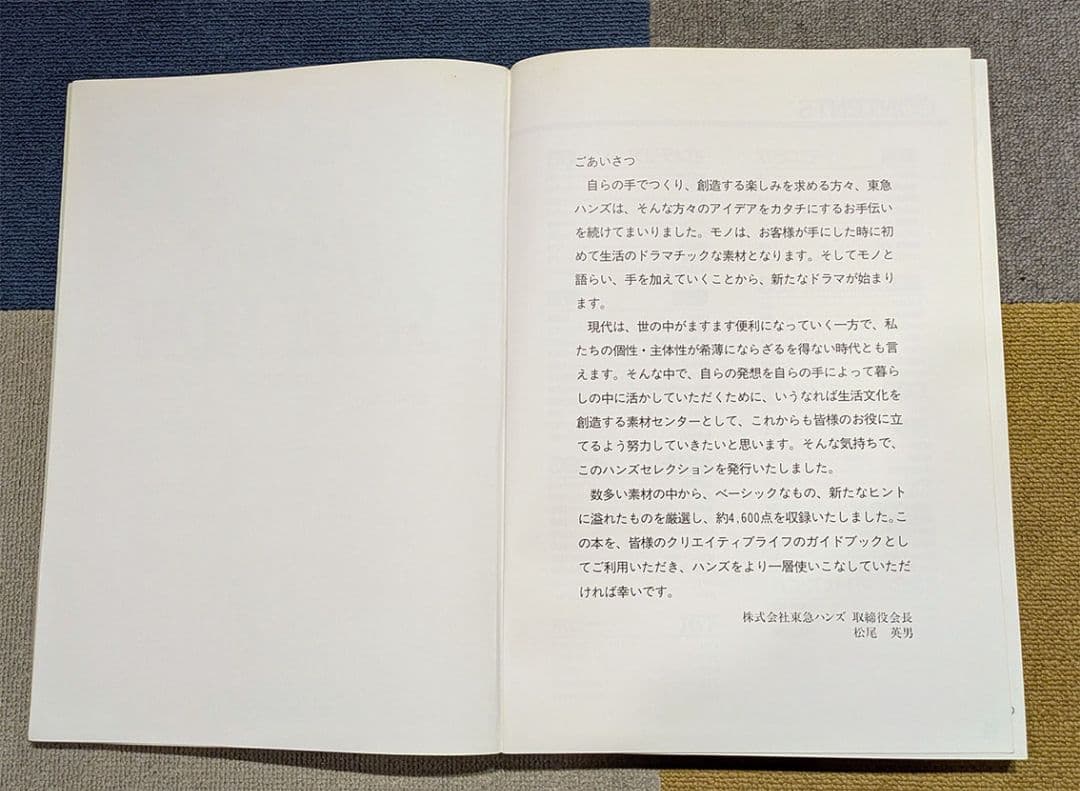 ごあいさつ
自らの手でつくり、創造する楽しみを求める方々、東急
ハンズは、そんな方々のアイデアをカタチにするお手伝い
を続けてまいりました。モノは、お客様が手にした時に初
めて生活のドラマチックな素材となります。そしてモノと
語らい、手を加えていくことから、新たなドラマが始まり
ます。
現代は、世の中がますます便利になっていく一方で、私
たちの個性・主体性が希薄にならざるを得ない時代とも言
えます。そんな中で、自らの発想を自らの手によって暮ら
しの中に活かしていただくために、いうなれば生活文化を
創造する素材センターとして、これからも皆様のお役に立
てるよう努力していきたいと思います。そんな気持ちで、
このハンズセレクションを発行いたしました。
数多い素材の中から、ベーシックなもの、新たなヒント
に溢れたものを厳選し、約4,600点を収録いたしました。こ
の本を、皆様のクリエイティブライフのガイドブックとし
てご利用いただき、ハンズをより一層使いこなしていただ
ければ幸いです。
株式会社東急ハンズ 取締役会長
松尾 英男